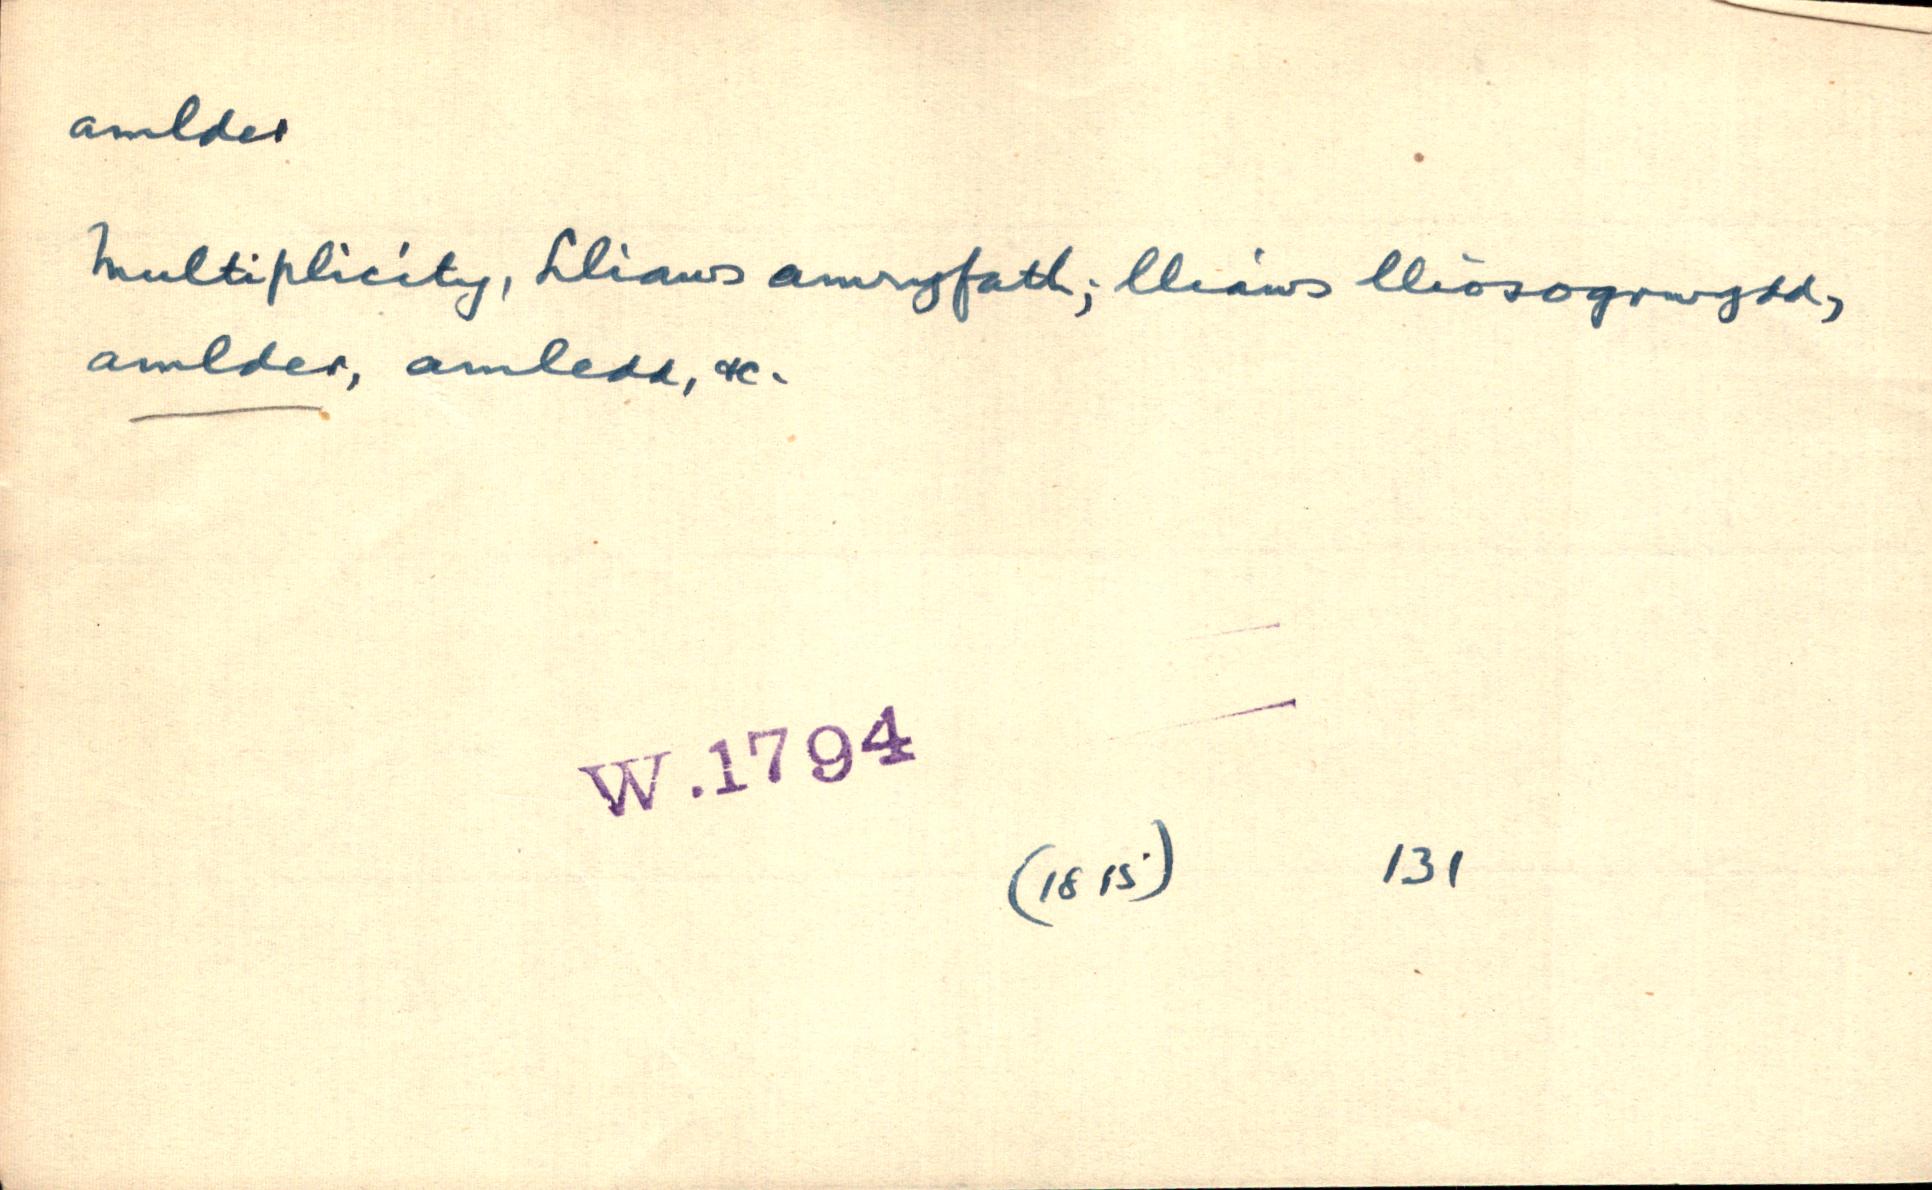 amlder
Multiplicity, Lliaws amryfath; lliaws lliosogrwydd,
amlder, amledd, &c.
W.1794
(1815) 131